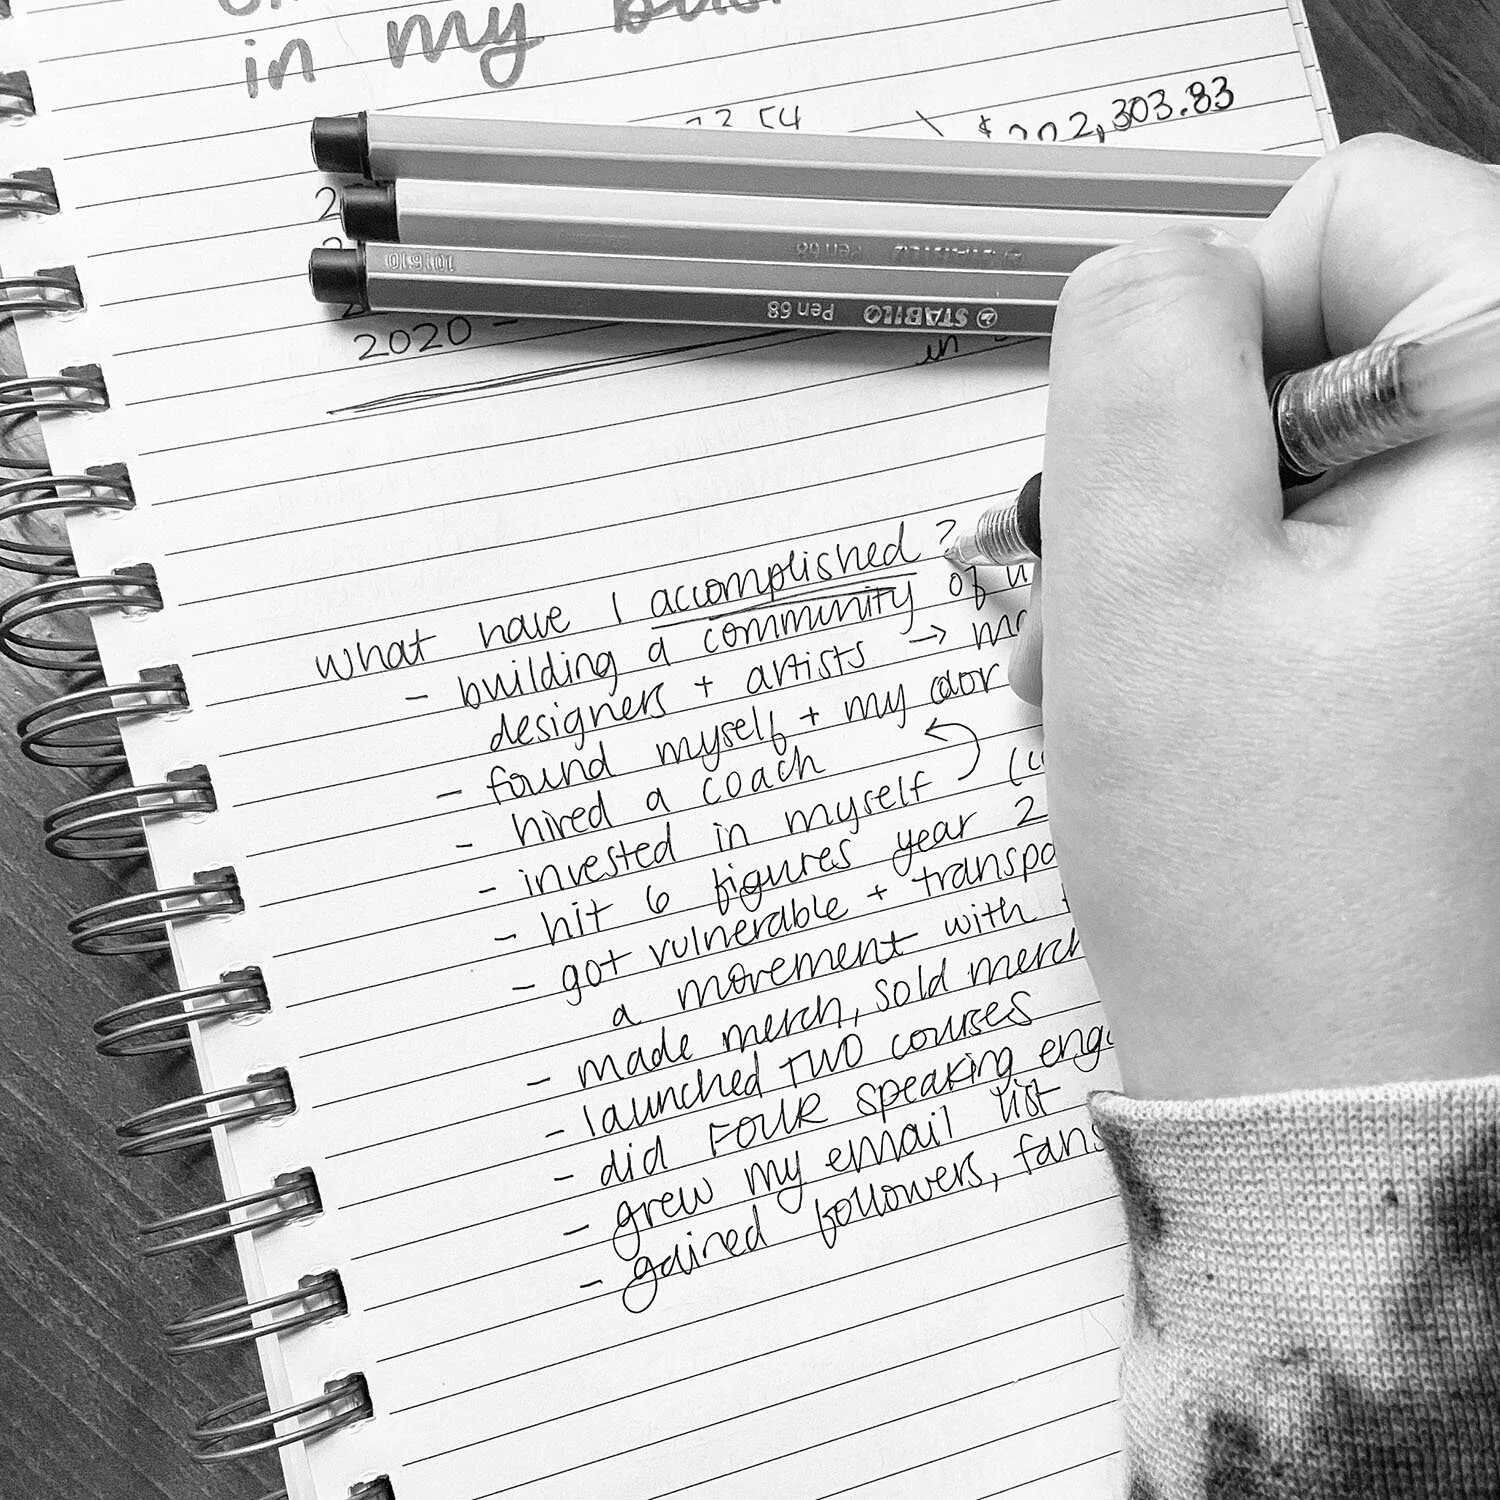 in my
$ 202,303.83
2020 -
in
10|610
STABILO Pen 68
STABILO Pen 68
What have I accomplished?
- building a community of
designers + artists →
- found myself + my
- hired a coach
- invested in myself
- hit 6 figures year 2
- got vulnerable +
a movement with
- made merch, sold merch
- launched TWO courses
- did FOUR speaking
- grew my email list
- gained followers, fans